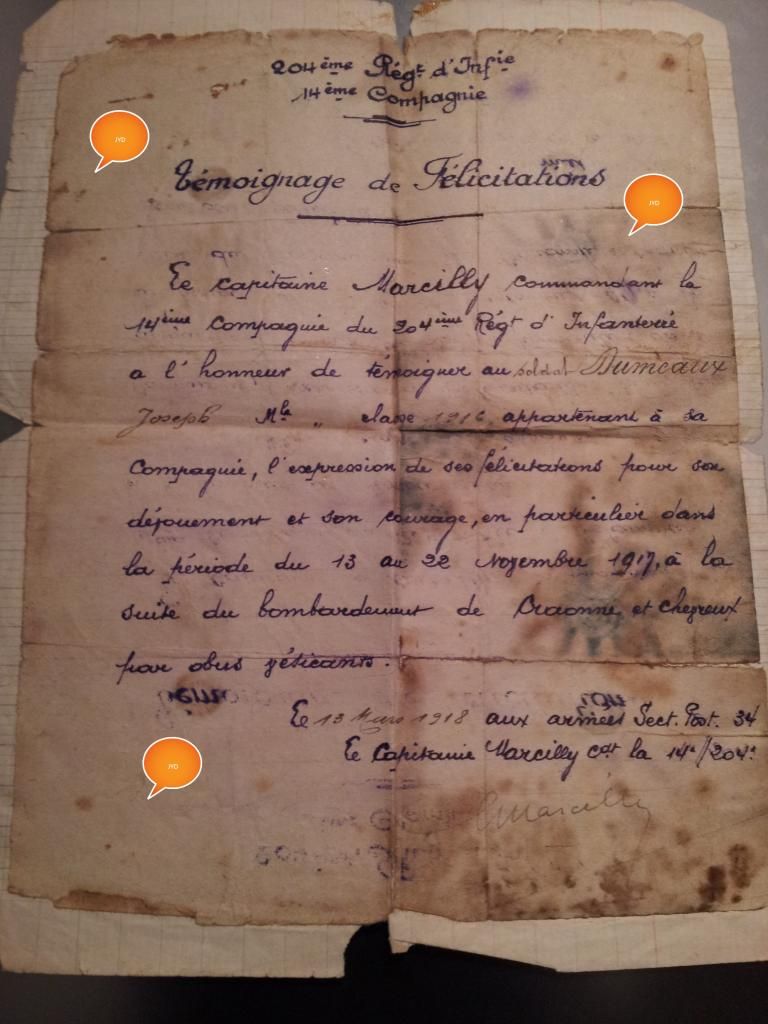 204ème Régt d'Infie
14ème Compagnie
JYD
Témoignage de Félicitations
JYD
Le capitaine Marcilly commandant la
14ème Compagnie du 204ème Régt d'Infanterie
a l'honneur de témoigner au soldat Dumeaux
Joseph Mle " classe 1916 appartenant à sa
Compagnie, l'expression de ses félicitations pour son
dévouement et son courage, en particulier dans
la période du 13 au 22 Novembre 1917, à la
suite du bombardement de Craonne et Chevreux
par obus vésicants.
Le 13 Mars 1918 aux armées Sect. Post. 34
Le Capitaine Marcilly cdt la 14e/204e
JYD
Marcilly